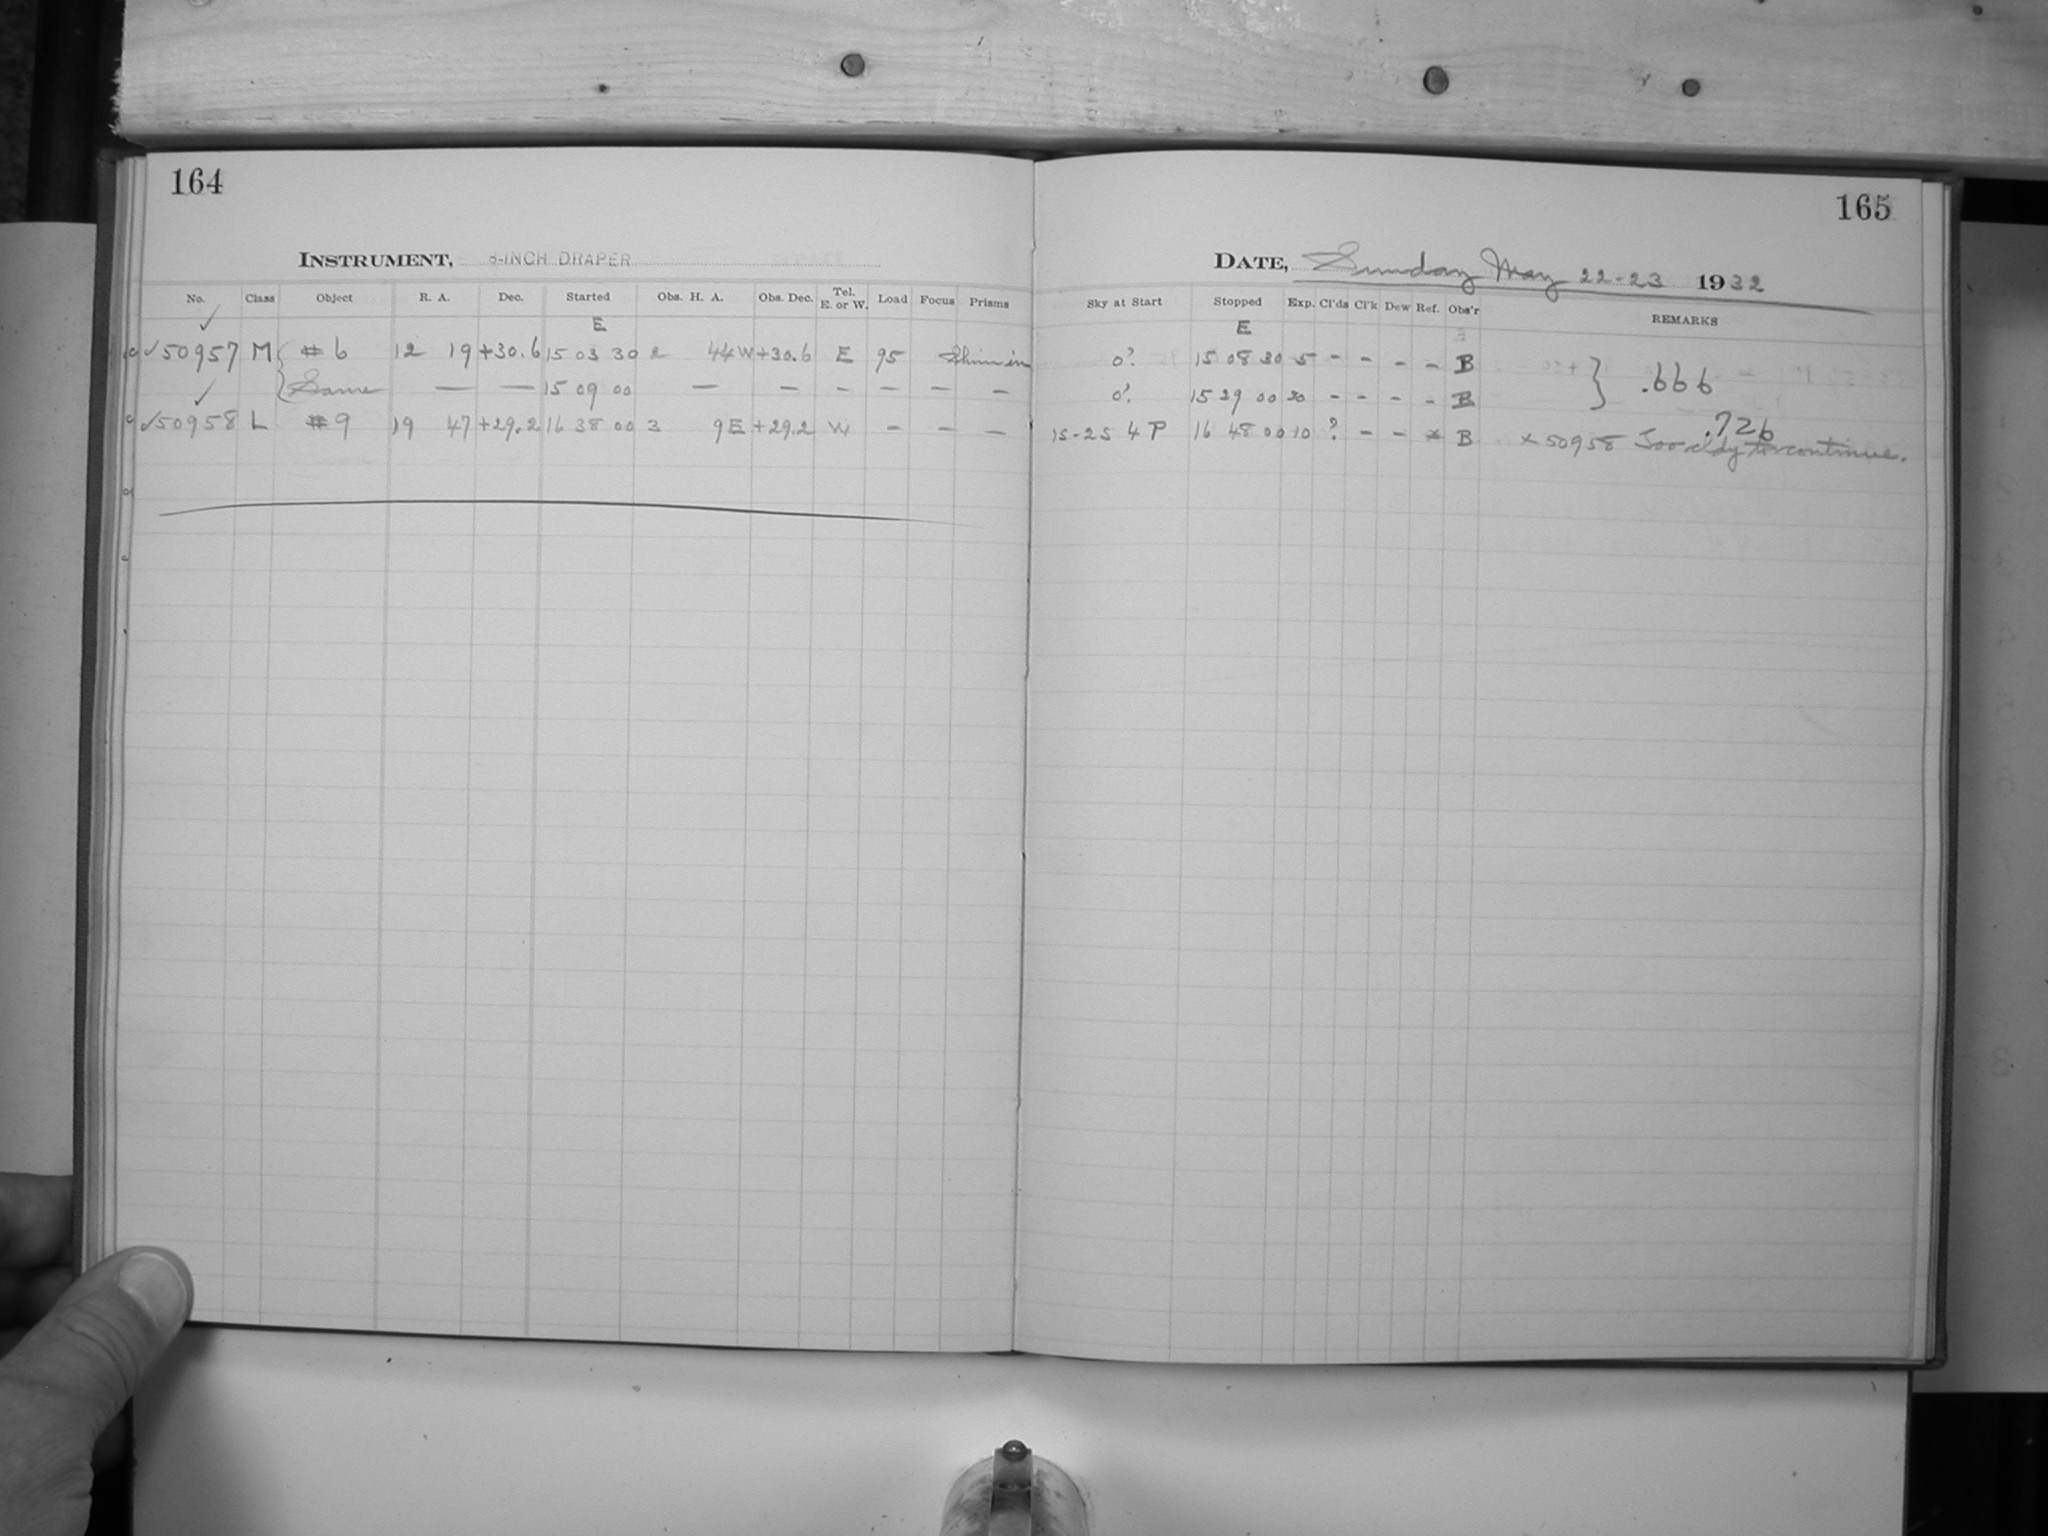 164
INSTRUMENT, 8-INCH DRAPER
No. Class Object R. A. Dec. Started Obs. H. A. Obs. Dec. Tel. E. or W. Load Focus Prisms
✓ E
✓50957 M { # 6 12 19 +30.6 15 03 30 2 44 W +30.6 E 95 Shim in
✓ { Same — — 15 09 00 — — — — — —
✓50958 L # 9 19 47 +29.2 16 38 00 3 9 E +29.2 W — — —
165
DATE, Sunday May 22-23 1932
Sky at Start Stopped Exp. Cl'ds Cl'k Dew Ref. Obs'r REMARKS
E
0? 15 08 30 5 - - - - B } .666
0? 15 29 00 20 - - - - B
15-25 4 P 16 48 00 10 ? - - x B .726
x 50958 Too cldy to continue.